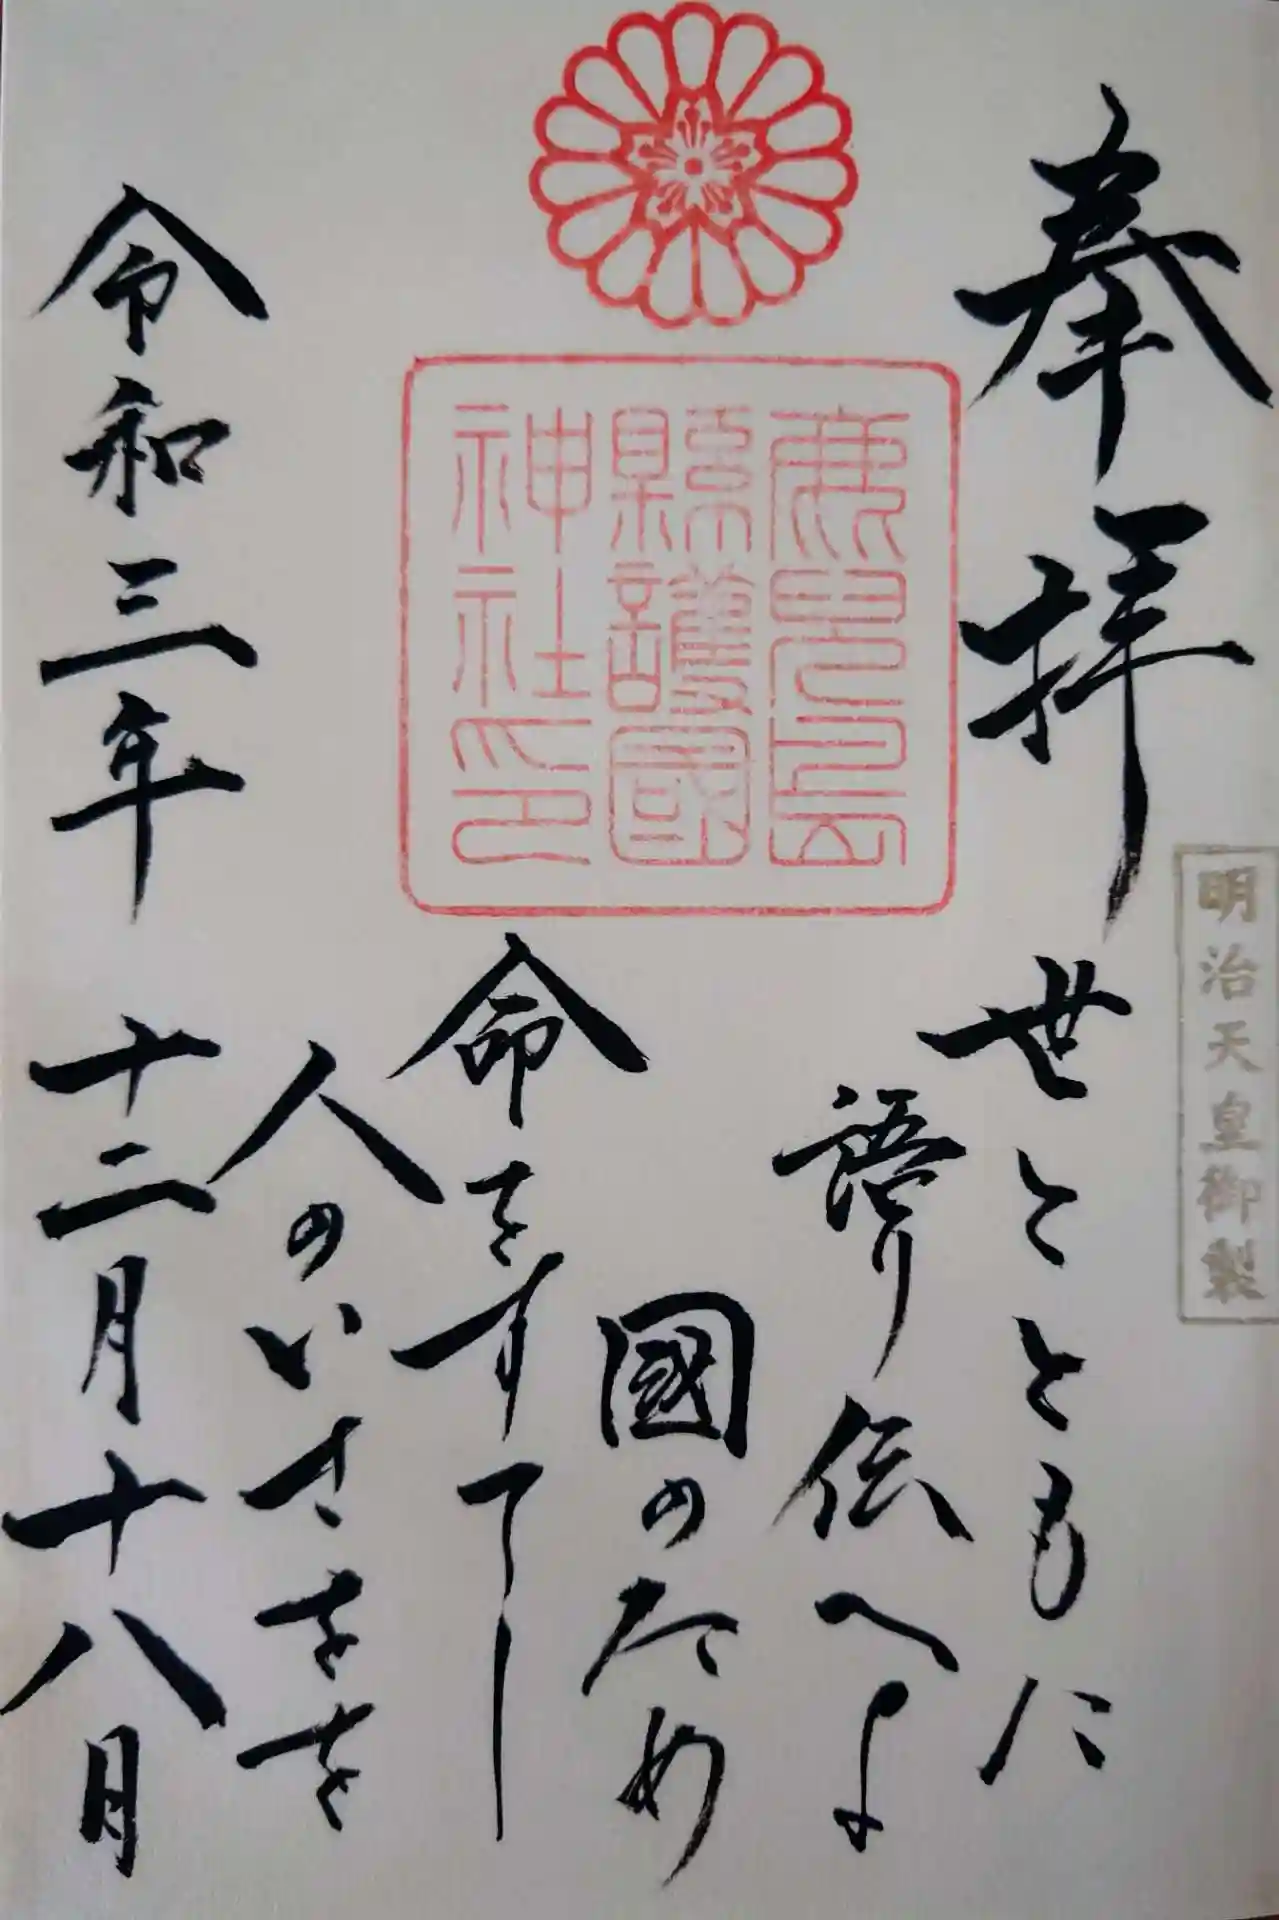 明治天皇御製
奉拝
世とともに
語り伝へよ
國のため
命をすてし
人のいさをを
鹿兒島
縣護國
神社印
令和三年 十二月十八日